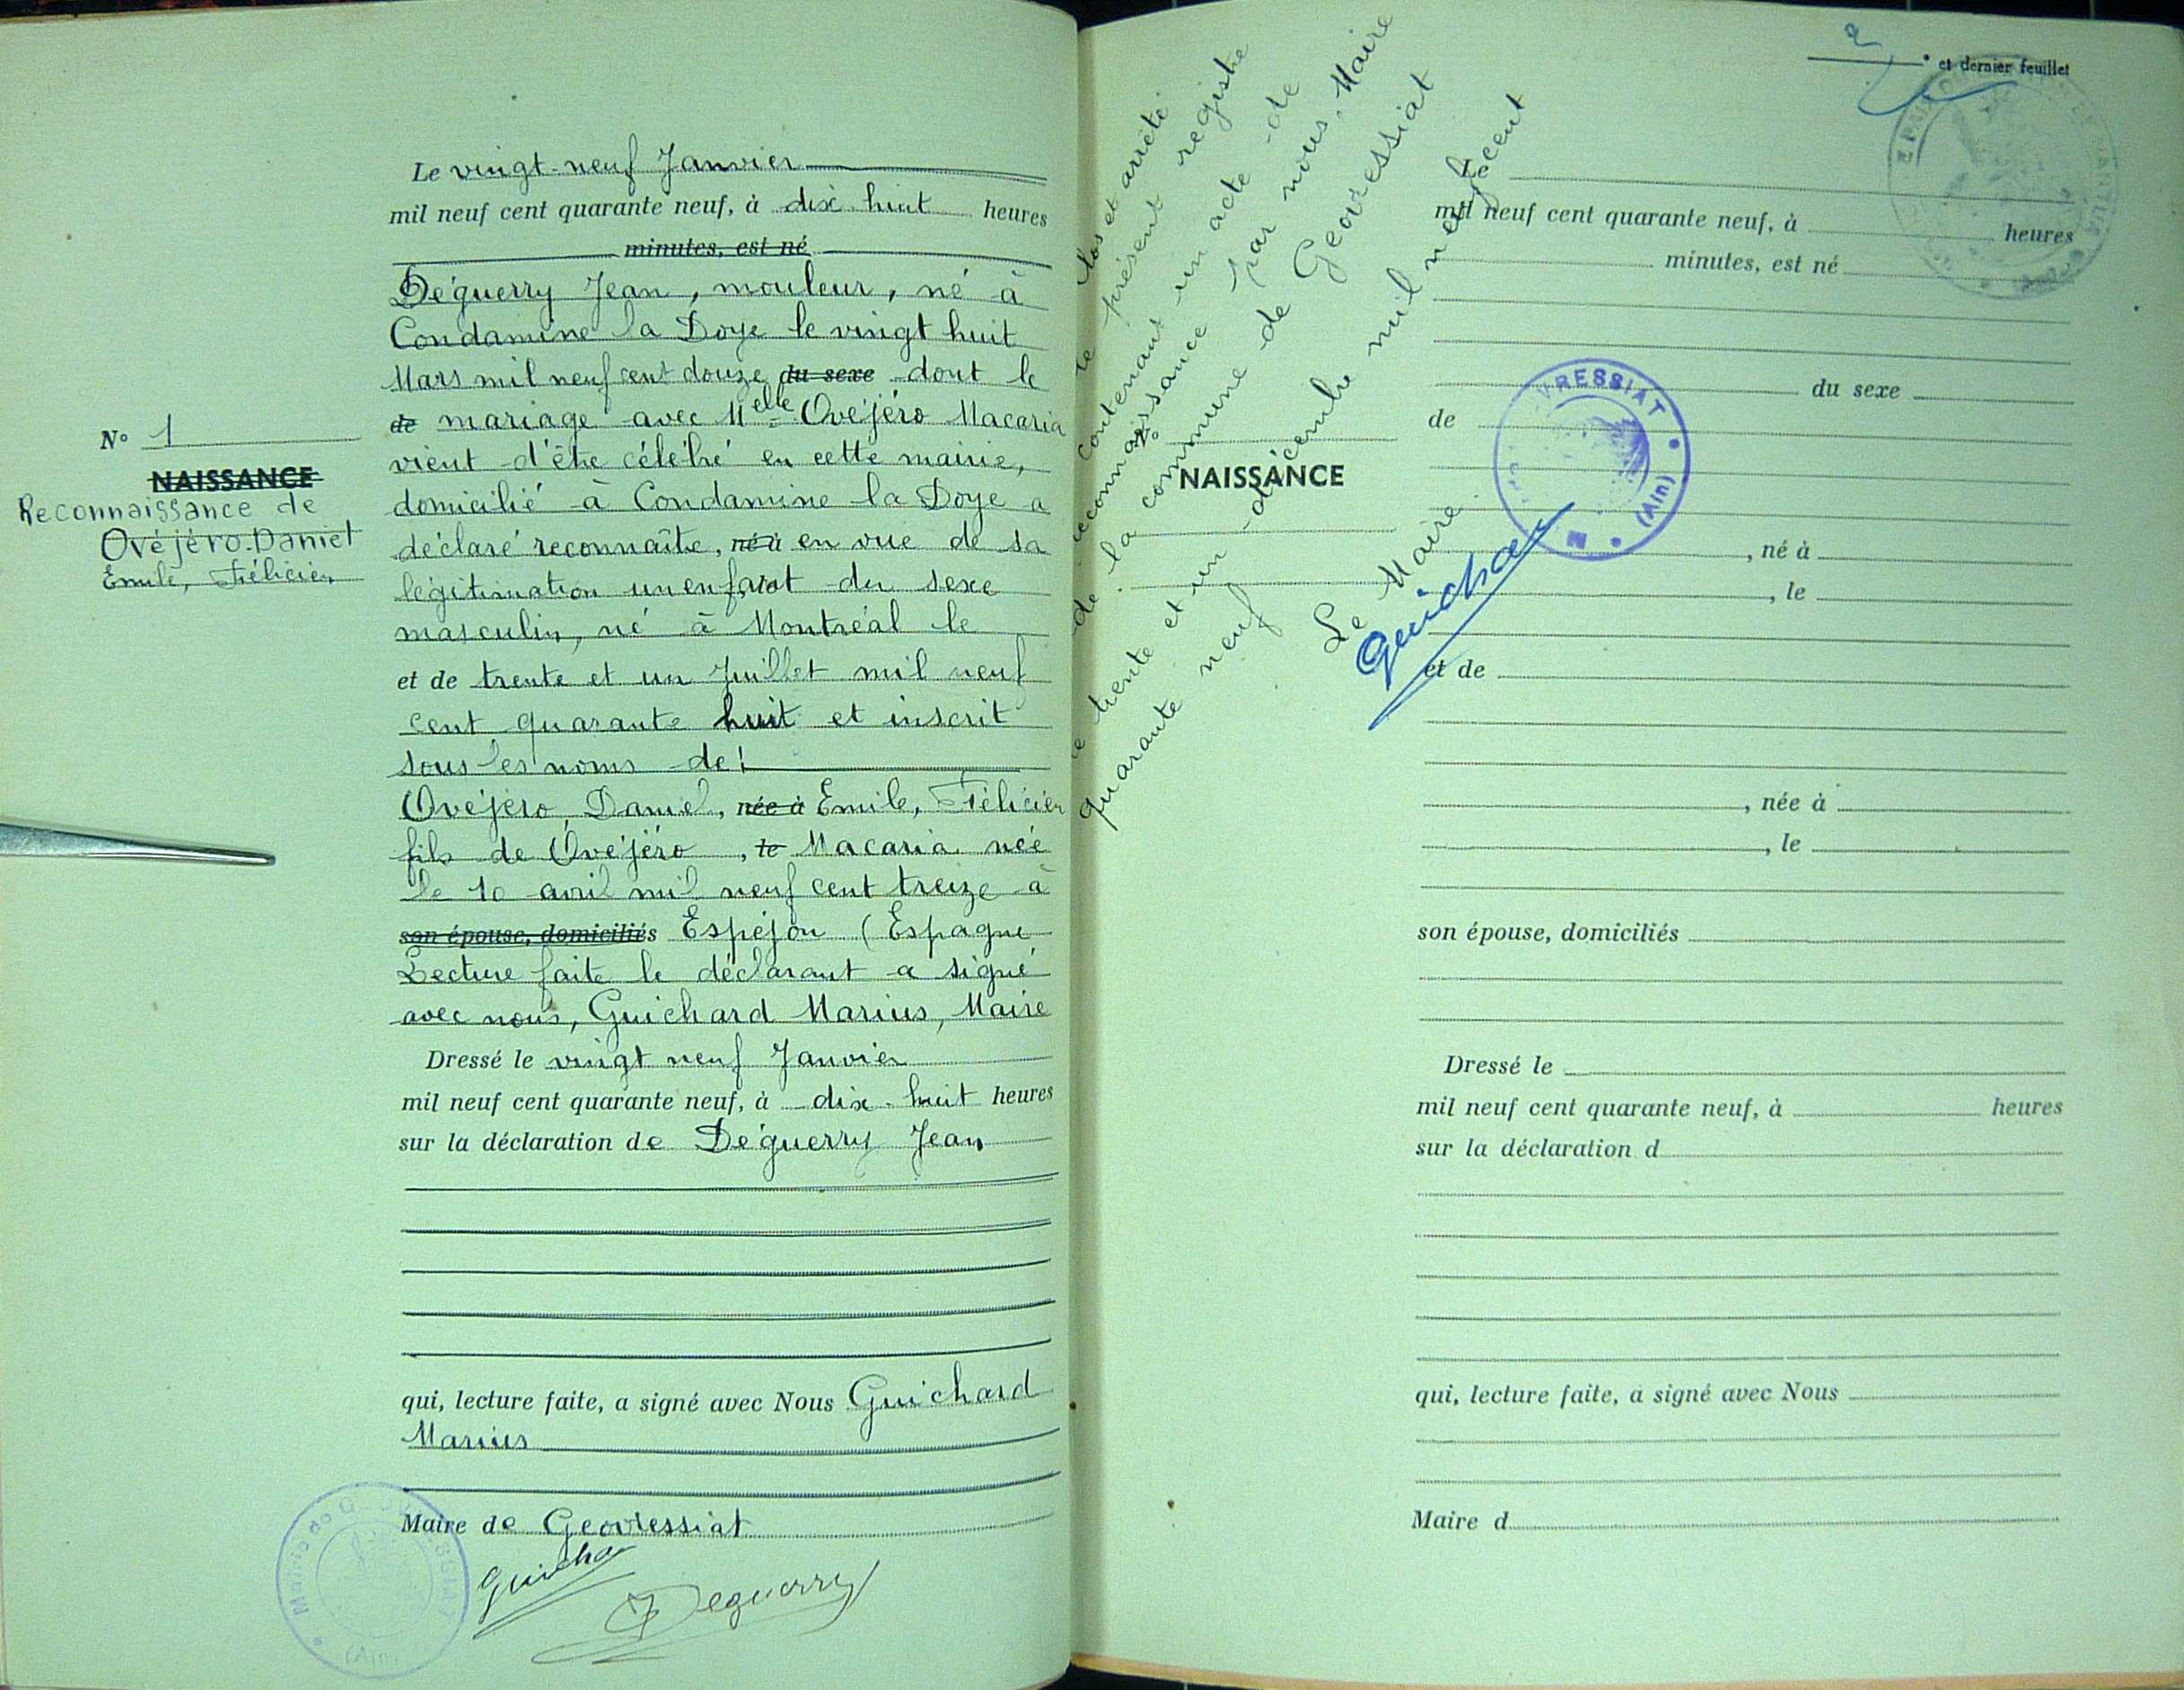 N° 1
NAISSANCE
Reconnaissance de
Ovéjéro Daniel
Emile, Félicien
Le vingt-neuf Janvier
mil neuf cent quarante neuf, à dix huit heures
minutes, est né
Déguerry Jean, mouleur, né à
Condamine la Doye le vingt huit
Mars mil neuf cent douze du sexe dont le
de mariage avec Melle Ovéjéro Macaria
vient d'être célébré en cette mairie,
domicilié à Condamine la Doye a
déclaré reconnaître, né à en vue de sa
légitimation un enfant du sexe
masculin, né à Montréal le
et de trente et un Juillet mil neuf
cent quarante huit et inscrit
sous les noms de :
Ovéjéro, Daniel, née à Emile, Félicien
fils de Ovéjéro, le Macaria née
le 10 avril mil neuf cent treize à
son épouse, domiciliés Espéjon (Espagne
Lecture faite le déclarant a signé
avec nous, Guichard Marius, Maire
Dressé le vingt neuf Janvier
mil neuf cent quarante neuf, à dix-huit heures
sur la déclaration de Déguerry Jean
qui, lecture faite, a signé avec Nous Guichard
Marius
Maire de Geovressiat
Guichard
Deguerry
Mairie de GEOVRESSIAT
(Ain)
2 e et dernier feuillet
clos et arrêté
le présent registre
contenant un acte de
de reconnaissance par nous, Maire
de la commune de Geovressiat
le trente et un décembre mil neuf cent
quarante neuf
Le Maire
Guichard
VRESSIAT
(Ain)
N°
NAISSANCE
Le
mil neuf cent quarante neuf, à heures
minutes, est né
du sexe
de
, né à
, le
et de
, née à
, le
son épouse, domiciliés
Dressé le
mil neuf cent quarante neuf, à heures
sur la déclaration d
qui, lecture faite, a signé avec Nous
Maire d